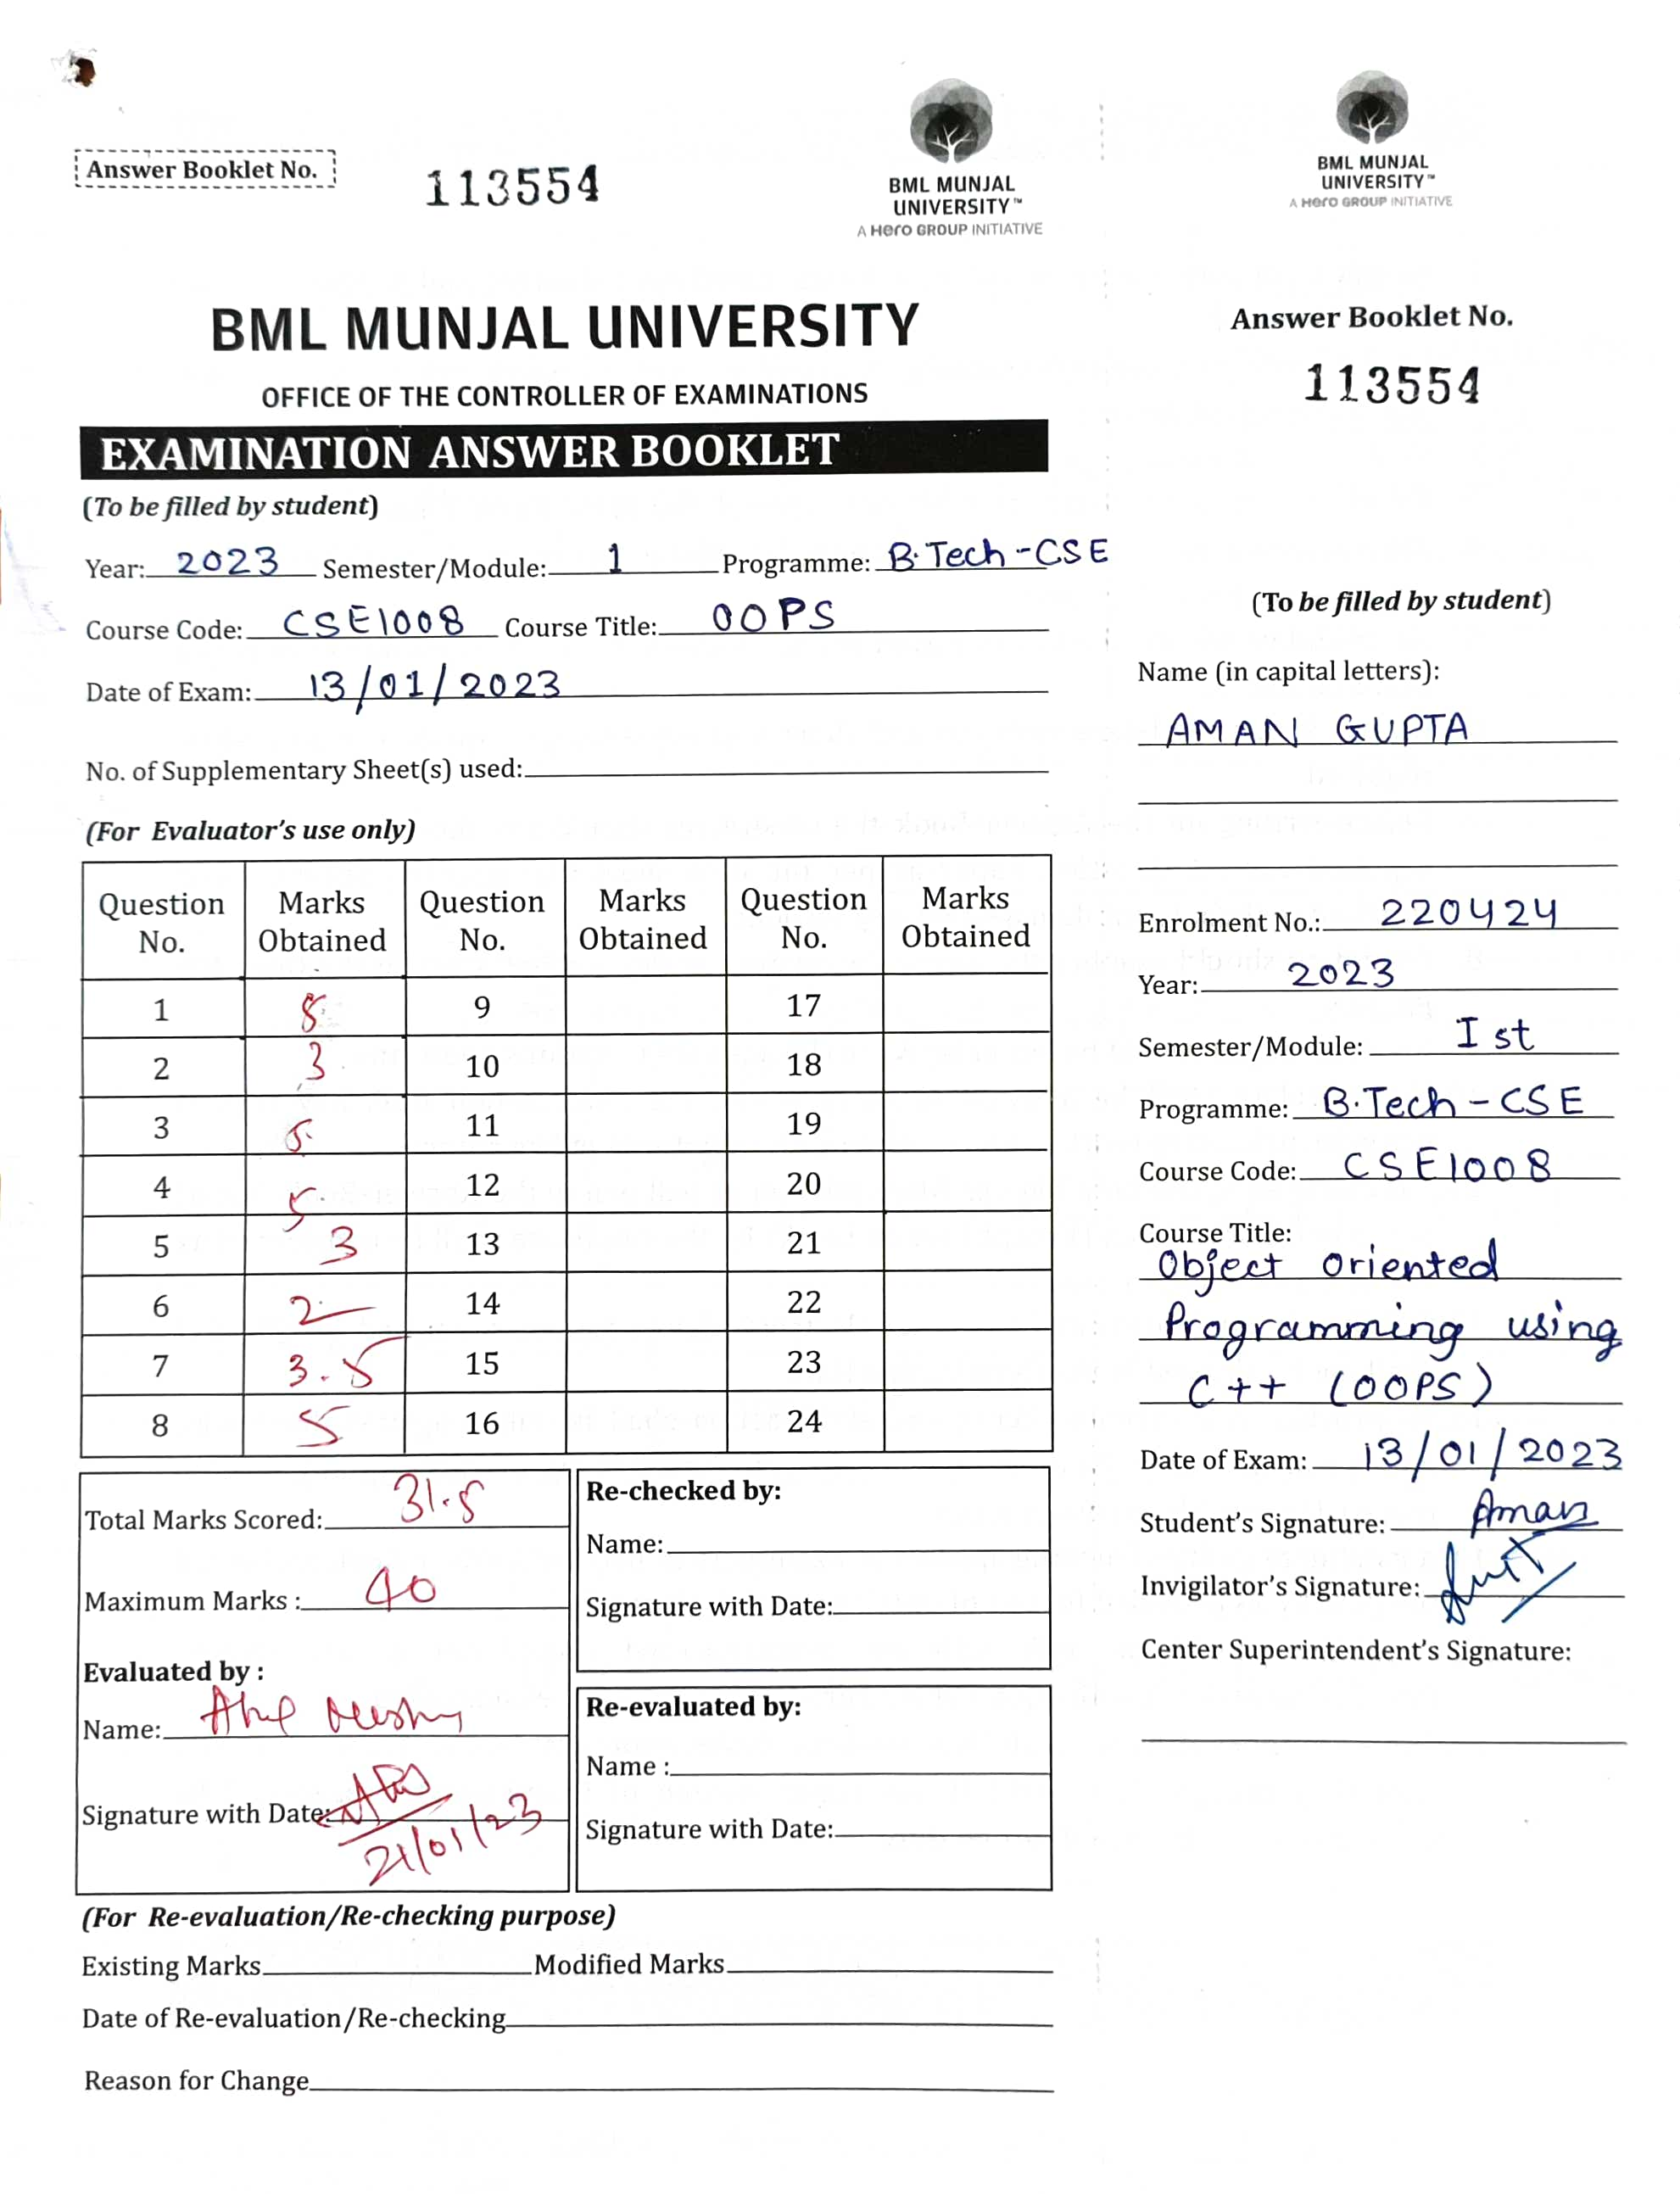 Answer Booklet No.
113554
BML MUNJAL
UNIVERSITY™
A Hero GROUP INITIATIVE
BML MUNJAL UNIVERSITY
OFFICE OF THE CONTROLLER OF EXAMINATIONS
EXAMINATION ANSWER BOOKLET
(To be filled by student)
Year: 2023 Semester/Module: 1 Programme: B.Tech-CSE
Course Code: CSE1008 Course Title: OOPS
Date of Exam: 13/01/2023
No. of Supplementary Sheet(s) used:
(For Evaluator's use only)
Question No. Marks Obtained Question No. Marks Obtained Question No. Marks Obtained
1 5 9 17
2 3 10 18
3 5 11 19
4 5 12 20
5 3 13 21
6 2 14 22
7 3.5 15 23
8 5 16 24
Total Marks Scored: 31.5
Maximum Marks : 40
Evaluated by :
Name:
Signature with Date: 21/01/23
Re-checked by:
Name:
Signature with Date:
Re-evaluated by:
Name :
Signature with Date:
(For Re-evaluation/Re-checking purpose)
Existing Marks Modified Marks
Date of Re-evaluation/Re-checking
Reason for Change
BML MUNJAL
UNIVERSITY™
A Hero GROUP INITIATIVE
Answer Booklet No.
113554
(To be filled by student)
Name (in capital letters):
AMAN GUPTA
Enrolment No.: 220424
Year: 2023
Semester/Module: I st
Programme: B.Tech-CSE
Course Code: CSE1008
Course Title:
Object Oriented
Programming using
C++ (OOPS)
Date of Exam: 13/01/2023
Student's Signature: Aman
Invigilator's Signature:
Center Superintendent's Signature: